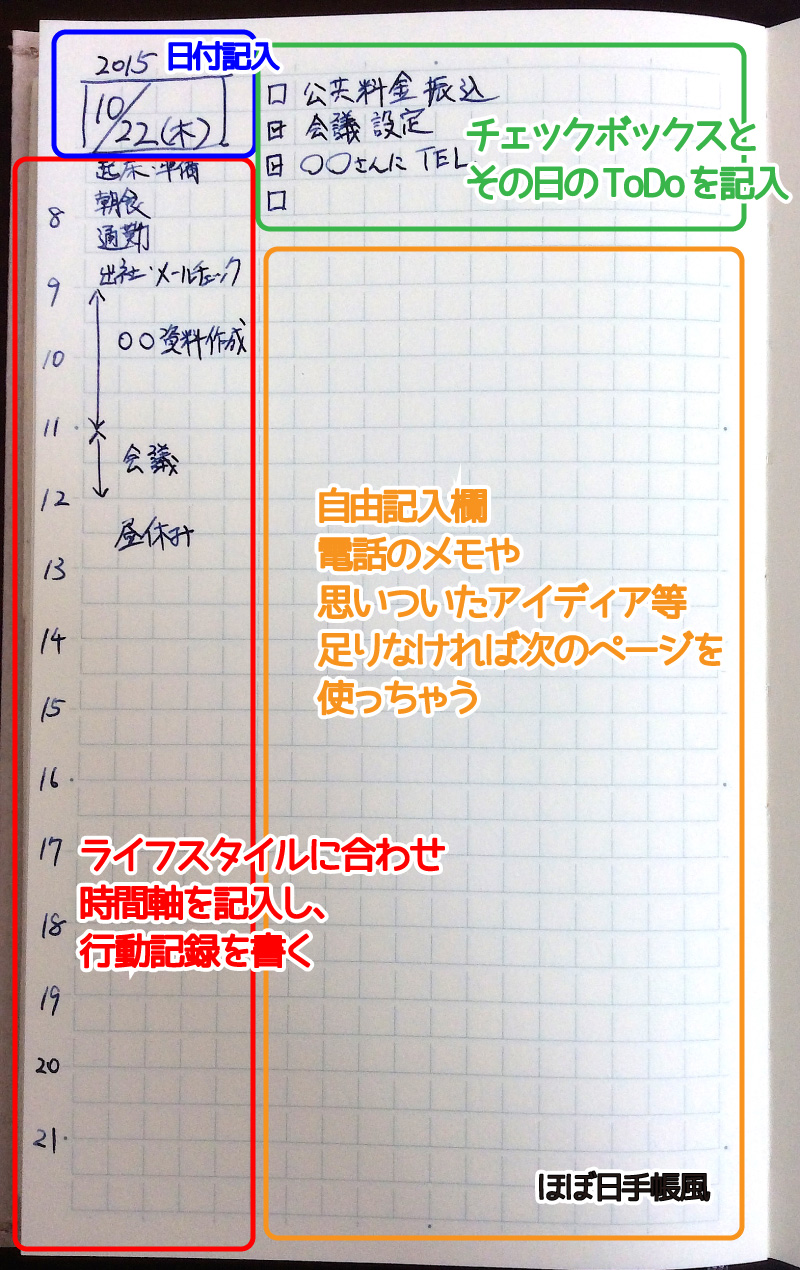 2015
日付記入
10/22(木)
□ 公共料金振込
会議設定
○○さんに TEL.
□
チェックボックスと
その日のToDoを記入
起床・準備
8
朝食
通勤
出社・メールチェック
9
○○資料作成
10
11
会議
12
昼休み
13
14
15
16
17
18
19
20
21
自由記入欄
電話のメモや
思いついたアイディア等
足りなければ次のページを
使っちゃう
ライフスタイルに合わせ
時間軸を記入し、
行動記録を書く
ほぼ日手帳風